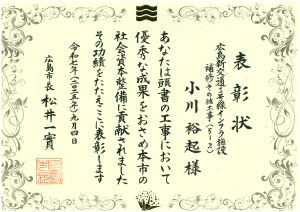 表彰状
広島新交通１号線インフラ施設
補修その他工事（５－２）
小川裕起様
あなたは頭書の工事において
優秀な成果をおさめ本市の
社会資本整備に貢献されました
その功績をたたえここに表彰します
令和七年（二〇二五）九月四日
広島市長 松井一實